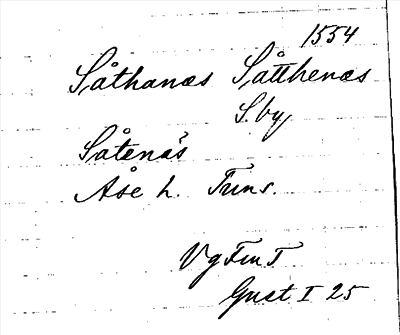 1554
Såthanæs Såtthenæs
S. by
Såtenäs
Åse h. Tuns.
Vg Fru T
Gust I 25